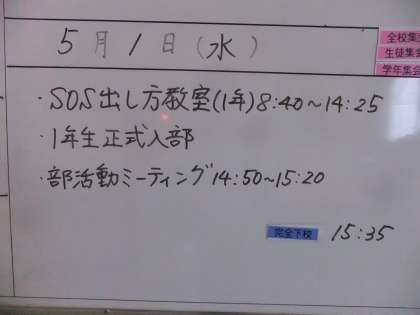 5月1日(水)
全校集
生徒集会
学年集会
・SOS出し方教室(1年)8:40～14:25
・1年生正式入部
・部活動ミーティング14:50～15:20
完全下校 15:35